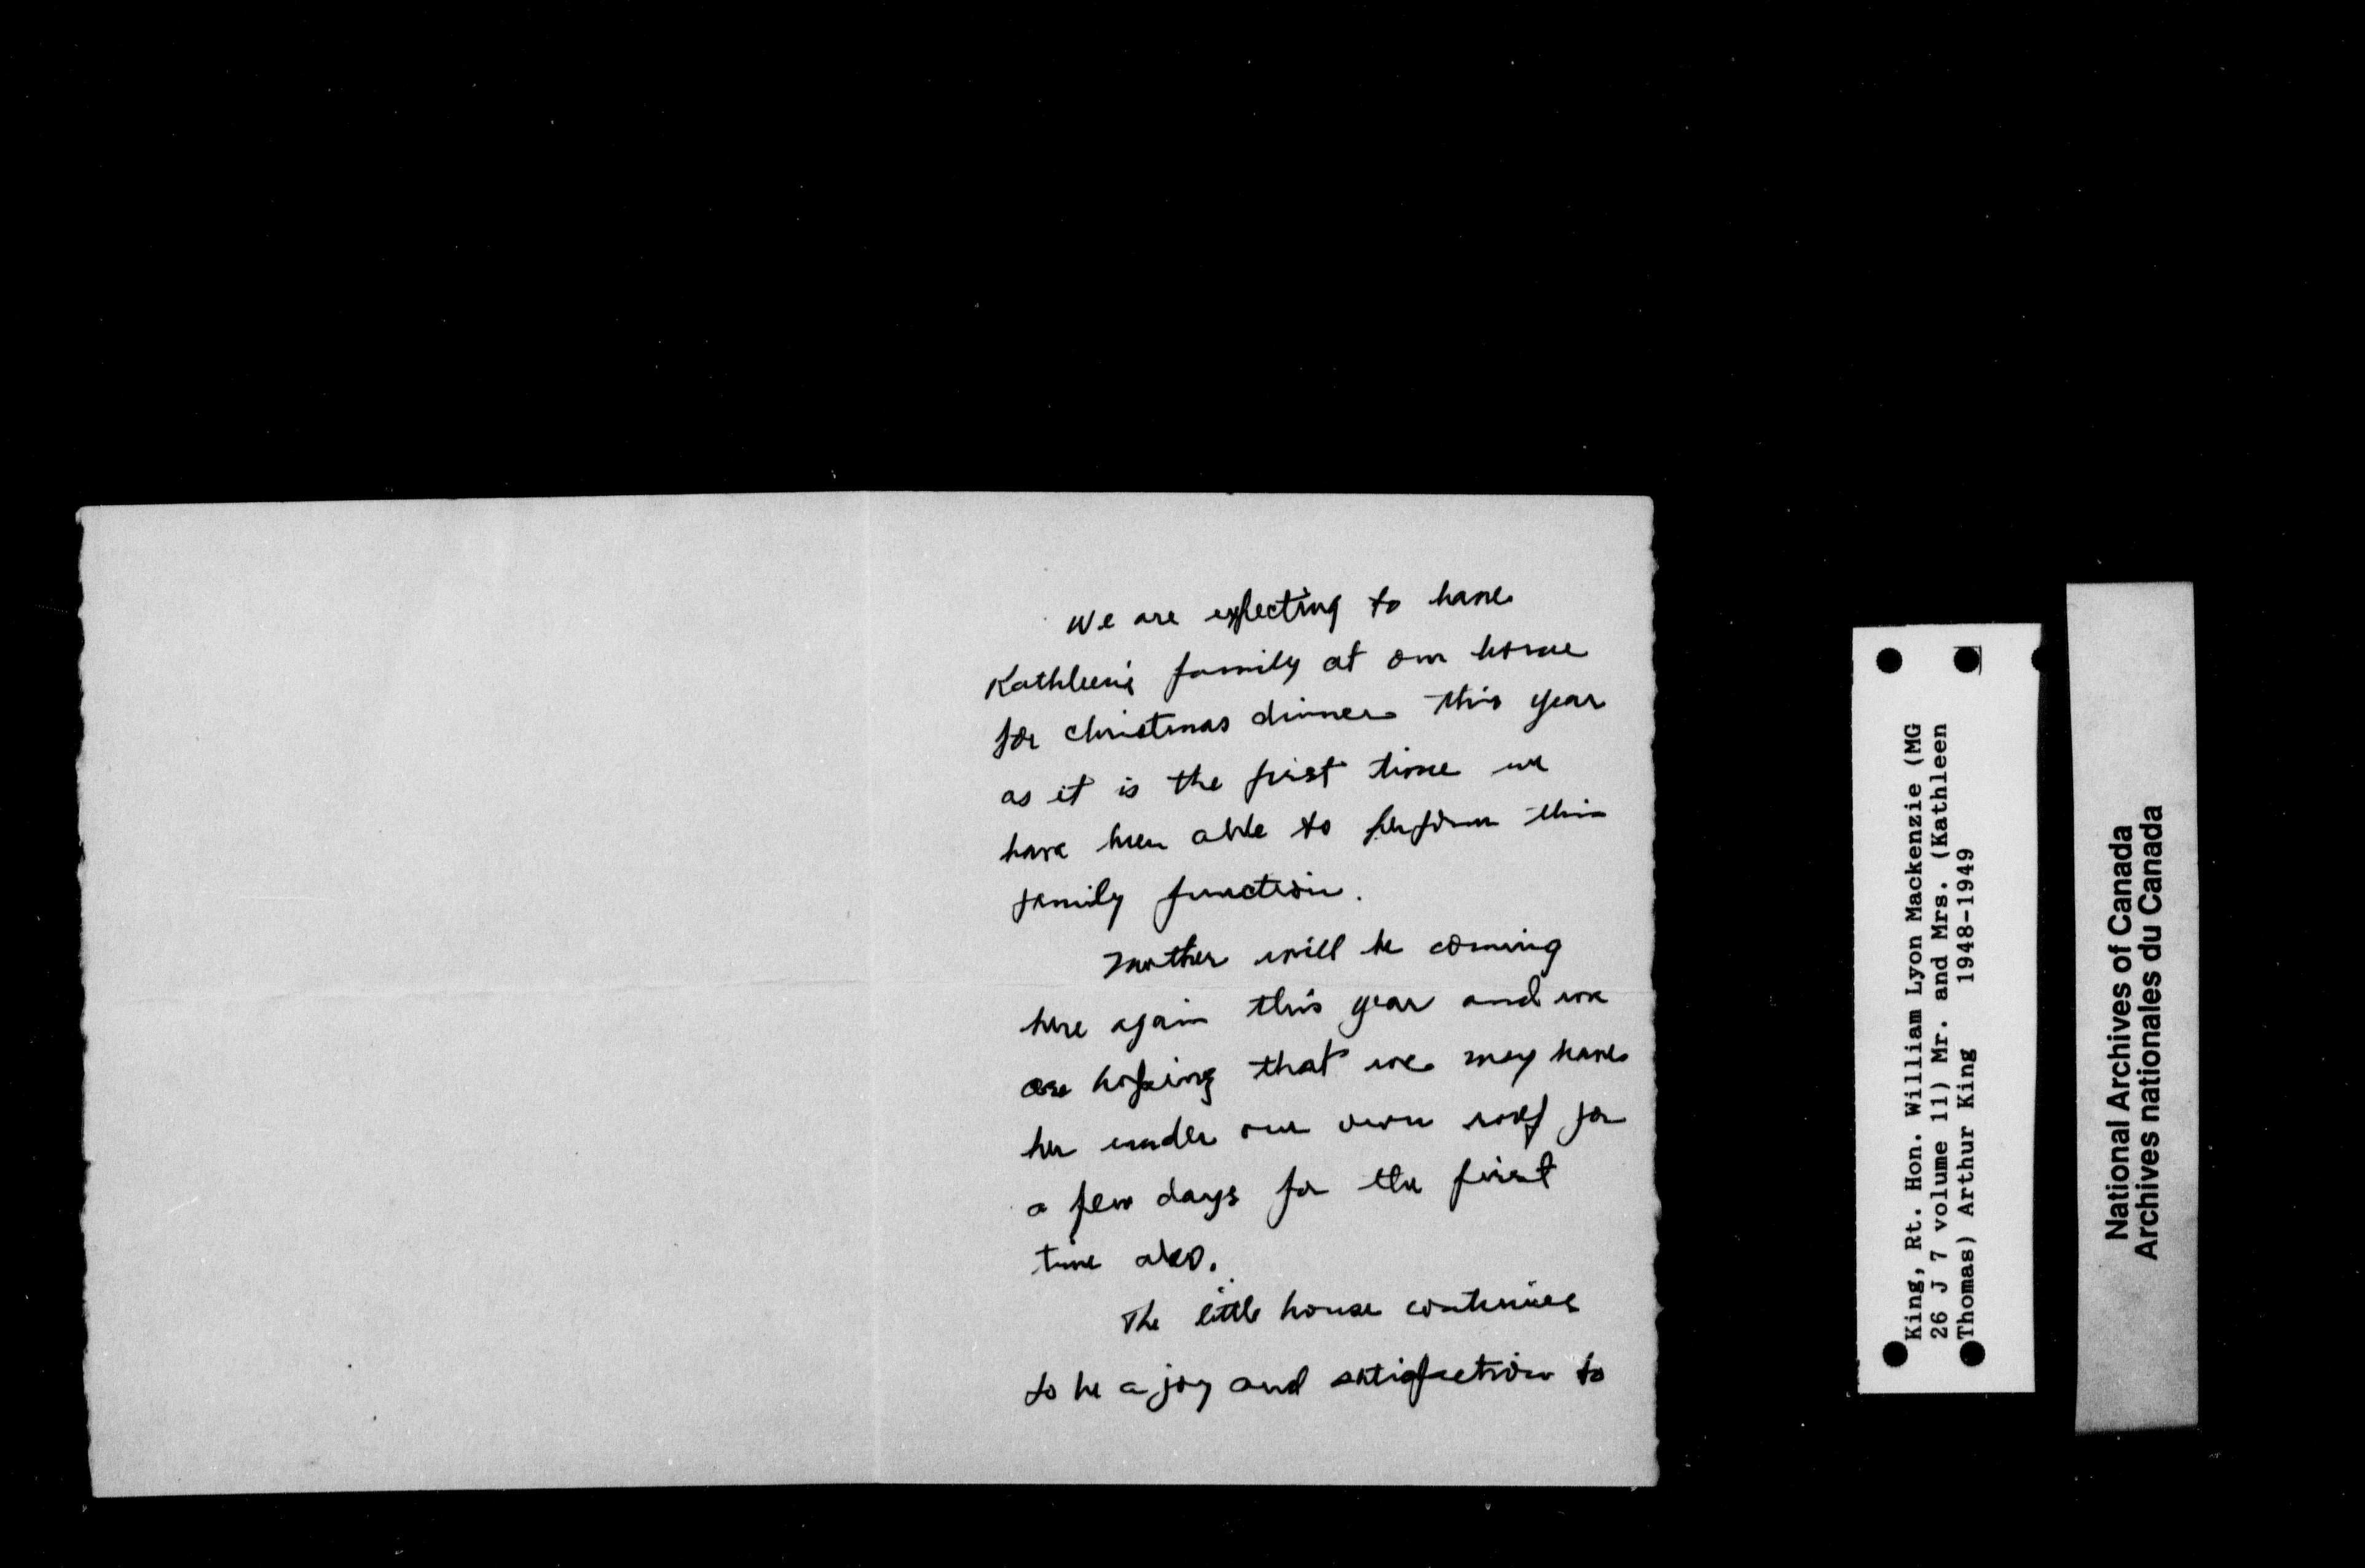 We are expecting to have
Kathleen's family at our home
for christmas dinner this year
as it is the first time we
have been able to perform this
family function.
Mother will be coming
here again this year and we
are hoping that we may have
her under our own roof for
a few days for the first
time also.
The little house continues
to be a joy and satisfaction to
King, Rt. Hon. William Lyon Mackenzie (MG
26 J 7 volume 11) Mr. and Mrs. (Kathleen
Thomas) Arthur King 1948-1949
National Archives of Canada
Archives nationales du Canada